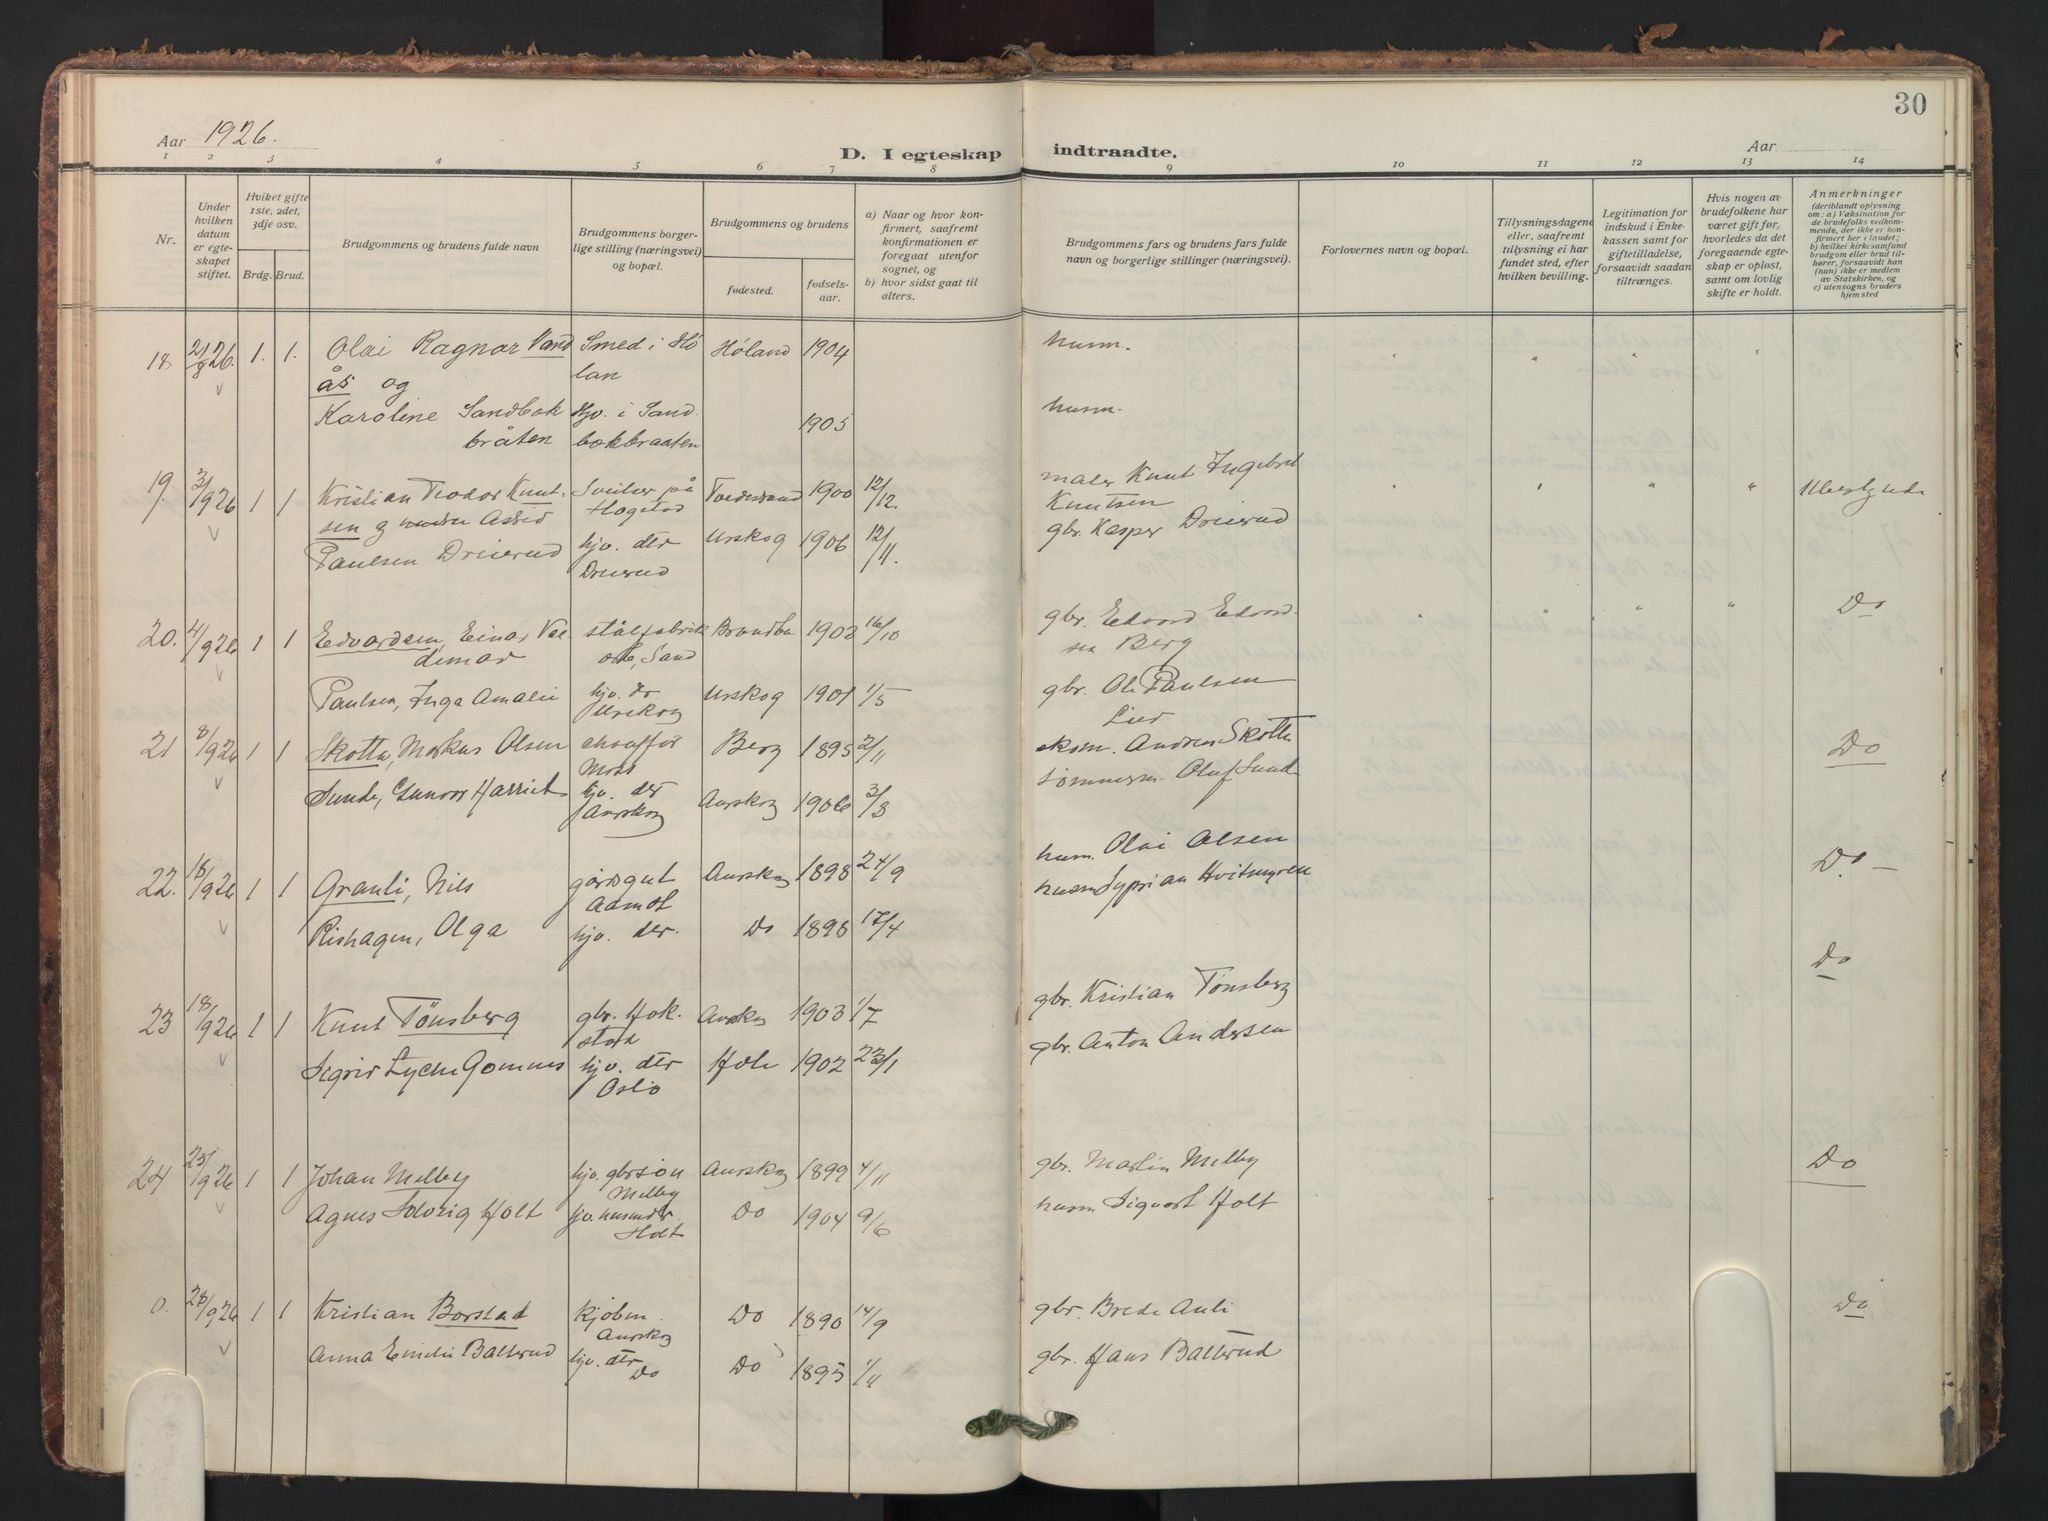 30
Aar 1926.
D. I egteskap indtraadte.
Aar
1 2 3 4 5 6 7 8 9 10 11 12 13 14
Nr.
Under hvilken datum er egteskapet stiftet.
Hviket gifte 1ste, 2det, 3dje osv.
Brdg. Brud.
Brudgommens og brudens fulde navn
Brudgommens borgerlige stilling (næringsvei) og bopæl.
Brudgommens og brudens
fødested.
fødselsaar.
a) Naar og hvor konfirmert, saafremt konfirmationen er foregaat utenfor sognet, og
b) hvor sidst gaat til alters.
Brudgommens fars og brudens fars fulde navn og borgerlige stillinger (næringsvei).
Forlovernes navn og bopæl.
Tillysningsdagene eller, saafremt tillysning ei har fundet sted, efter hvilken bevilling.
Legitimation for indskud i Enkekassen samt for giftetilladelse, forsaavidt saadan tiltrænges.
Hvis nogen av brudefolkene har været gift før, hvorledes da det foregaaende egteskap er opløst, samt om lovlig skifte er holdt.
Anmerkninger
(deriblandt oplysning om: a) Vaksination for de brudefolks vedkommende, der ikke er konfirmert her i landet; b) hvilket kirkesamfund brudgom eller brud tilhører, forsaavidt han (hun) ikke er medlem av Statskirken, og c) utensogns bruders hjemsted
18 21/8 26. 1. 1. Olai Ragnar Vand Smed i Hö Høland 1904 husm.
ås og lan
Karoline Sandbæk Hjv. i Sand 1905 husm.
bråten bækbraaten
19. 3/9 26 1 1 Kristian Teodor Knut- Sveitser på Tvedestrand 1900 12/12. maler Knut Ingebret
sen og Astrid Hogstad Knutsen
Paulsen Drierud hjv. der Urskog 1906 12/11. gbr. Kasper Drierud
Drierud
20. 4/9 26 1 1 Edvardsen, Einar Val stålfabrik Brandbu 1902 16/10 gbr. Edvard Edvard- Do
demar Sand sen Berg
Paulsen, Inga Amalie hjv. do Urskog 1901 1/5 gbr. Ole Paulsen
Urskog Lier
21 8/9 26 1 1 Skotta, Markus Olsen chauffør Berg 1895 2/11 skom. Andreas Skotta Do
Moss
Sunde, Gunvor Harriet hjv. der Aurskog 1906 3/8 tømmerm. Oluf Sunde
Aurskog
22. 18/9 26 1 1 Granli, Nils gårdsgut Aurskog 1898 24/9 husm. Olai Olsen Do. -
Aamot
Rishagen, Olga hjv. der. Do 1898 17/4 husm Syprian Hvitmyren
Do
23 18/9 26 1 1 Knut Tönsberg gbr. Hok- Aurskog 1903 1/7 gbr. Kristian Tønsberg
stad
Sigrid Lyche Gomnes hjv. der Hole 1902 23/1 gbr. Anton Andersen
Oslo
24 25/9 26 1 1 Johan Melby hjv. gbrsøn Aurskog 1899 4/11 gbr. Martin Melby Do
Melby
Agnes Solveig Holt hjv. husmdtr Do 1904 9/6 husm Sigvart Holt
Holt
0. 28/9 26 1 1 Kristian Borstad kjøbm. Do 1890 14/9 gbr. Brede Auli Do
Aurskog
Anna Emilie Ballerud hjv. der Do 1895 1/4 gbr. Hans Ballerud
Do